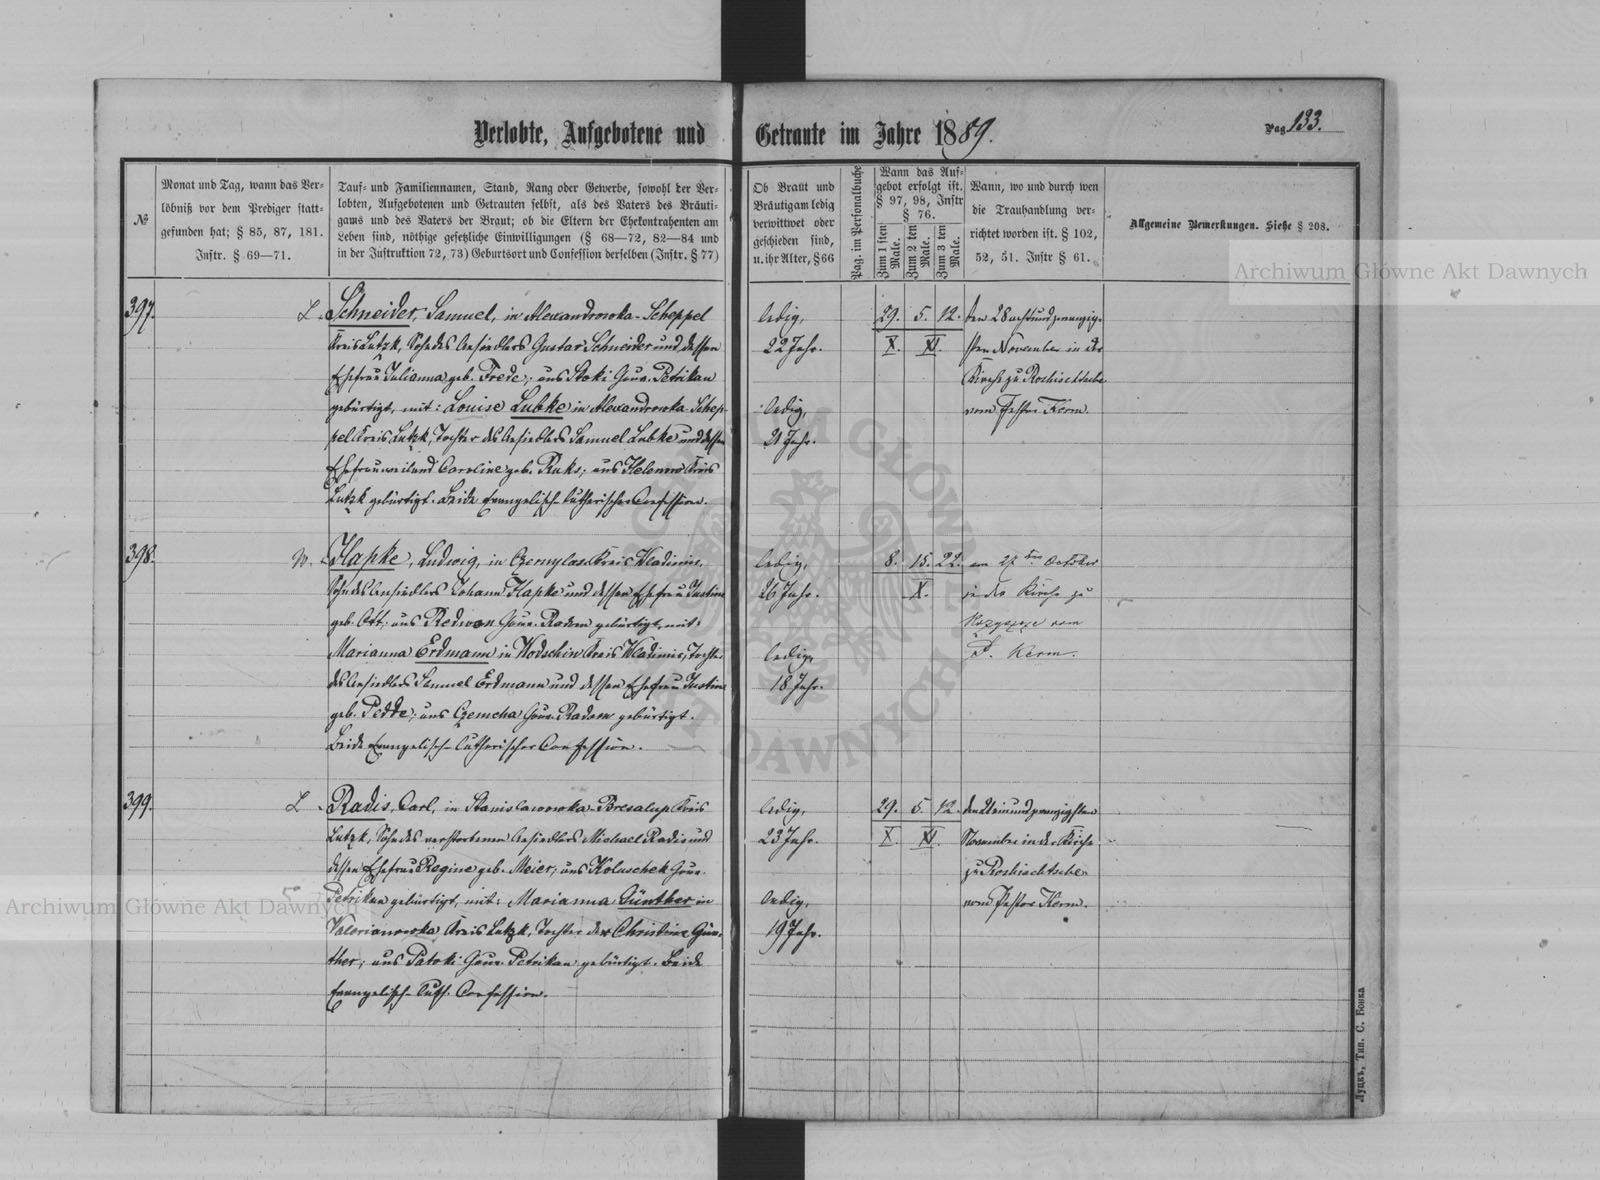 Verlobte, Aufgebotene und Getraute im Jahre 1889.
Pag. 133.
№
Monat und Tag, wann das Ver-
löbniß vor dem Prediger statt-
gefunden hat; § 85, 87, 181.
Instr. § 69—71.
Tauf- und Familiennamen, Stand, Rang oder Gewerbe, sowohl der Ver-
lobten, Aufgebotenen und Getrauten selbst, als des Vaters des Bräuti-
gams und des Vaters der Braut; ob die Eltern der Ehekontrahenten am
Leben sind, nöthige gesetzliche Einwilligungen (§ 68—72, 82—84 und
in der Instruktion 72, 73) Geburtsort und Confession derselben (Instr. § 77)
Ob Braut und
Bräutigam ledig
verwittwet oder
geschieden sind,
u. ihr Alter, § 66
Pag. im Personalbuche
Wann das Auf-
gebot erfolgt ist.
§ 97, 98, Instr
§ 76.
Zum 1 sten Male.
Zum 2 ten Male.
Zum 3 ten Male.
Wann, wo und durch wen
die Trauhandlung ver-
richtet worden ist. § 102,
52, 51. Instr § 61.
Allgemeine Bemerkungen. Siehe § 208.
397.
L.
Schneider, Samuel, in Alexandrowka-Scheppel
Kreis Lutzk, Sohn des Ansiedlers Gustav Schneider und dessen
Ehefrau Julianna geb. Frede; aus Stoki Gouv. Petrikau
gebürtigt, mit: Louise Lubke in Alexandrowka-Schep-
pel Kreis Lutzk, Tochter des Ansiedlers Samuel Lubke und dessen
Ehefrau weiland Caroline geb. Ruks; aus Helenow Kreis
Lutzk gebürtigt. Beide Evangelisch-Lutherischer Confession.
ledig,
22 Jahr.
ledig,
21 Jahr.
29. 5. 12.
X. XI.
den 28 achtundzwanzig-
sten November in der
Kirche zu Roshischtsche
vom Pastor Kerm.
398.
W.
Hapke, Ludwig, in Czernylas Kreis Wladimir,
Sohn des Ansiedlers Johann Hapke und dessen Ehefrau Justine
geb. Ott; aus Redwon Gouv. Radom gebürtigt, mit:
Marianna Erdmann in Wodschin Kreis Wladimir, Tochter
des Ansiedlers Samuel Erdmann und dessen Ehefrau Justine
geb. Pedde; aus Czemcha Gouv. Radom gebürtigt.
Beide Evangelisch-Lutherischer Confession.
ledig,
26 Jahr.
ledig,
18 Jahr.
8. 15. 22.
X.
am 27 ten October
in der Kirche zu
vom
P. Kerm.
399.
L.
Radis, Carl, in Stanislawowka-Bresalup Kreis
Lutzk, Sohn des verstorbenen Ansiedlers Michael Radis und
dessen Ehefrau Regine geb. Meier; aus Koluschek Gouv.
Petrikau gebürtigt, mit: Marianna Günther in
Valerianowka, Kreis Lutzk, Tochter der Christine Gün-
ther; aus Patoki Gouv. Petrikau gebürtigt. Beide
Evangelisch-Luth. Confession.
ledig,
23 Jahr.
ledig,
19 Jahr.
29. 5. 12.
X. XI.
den
November in der Kirche
zu Roshischtsche
vom Pastor Kerm.
Луцкъ, Тип. С. Бонка
Archiwum Główne Akt Dawnych
Archiwum Główne Akt Dawnych
ARCHIWUM GŁÓWNE AKT DAWNYCH